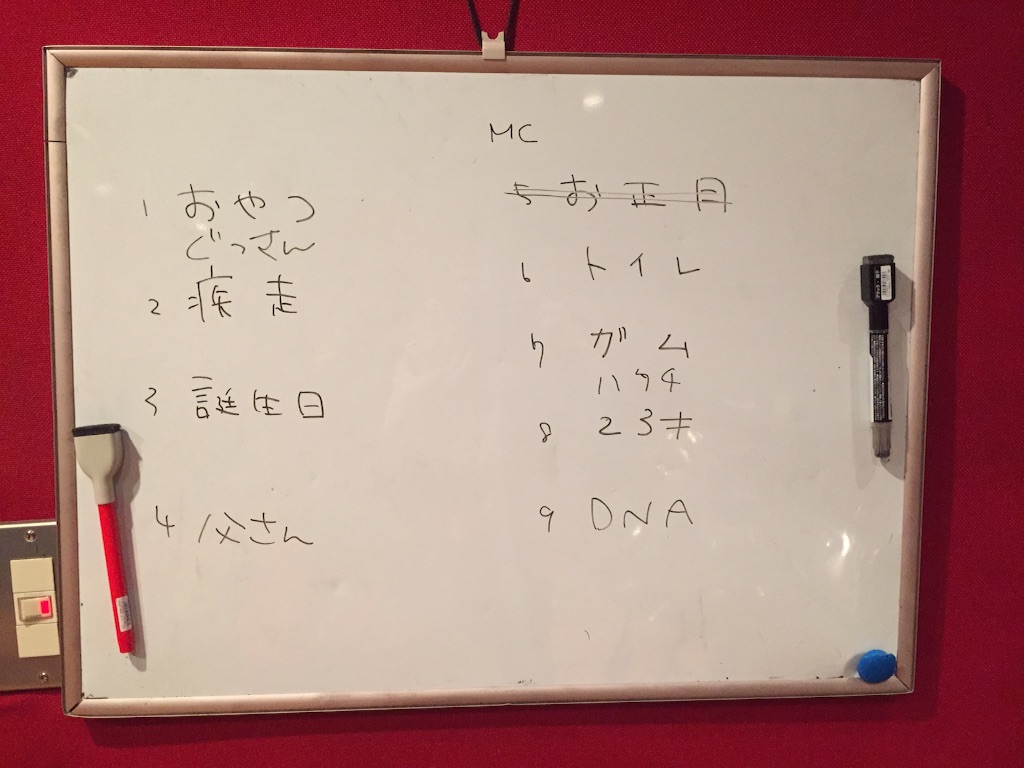 1 おやつ
どっさん
2 疾走
3 誕生日
4 父さん
MC
5 お正月
6 トイレ
7 ガム
ハタチ
8 23才
9 DNA